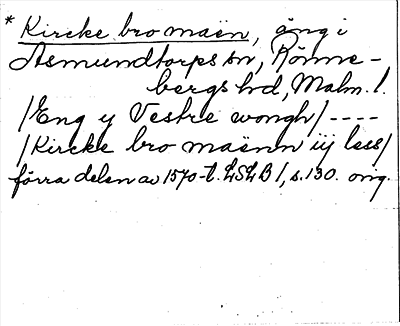 * Kircke bro maën, äng i
Asmundtorps sn, Rönne-
bergs hd, Malm. l.
/Eng y Vestre wongh/ ----
/Kircke bro maënn iij less/
förra delen av 1570-t. LSLB 1, s. 130. orig.